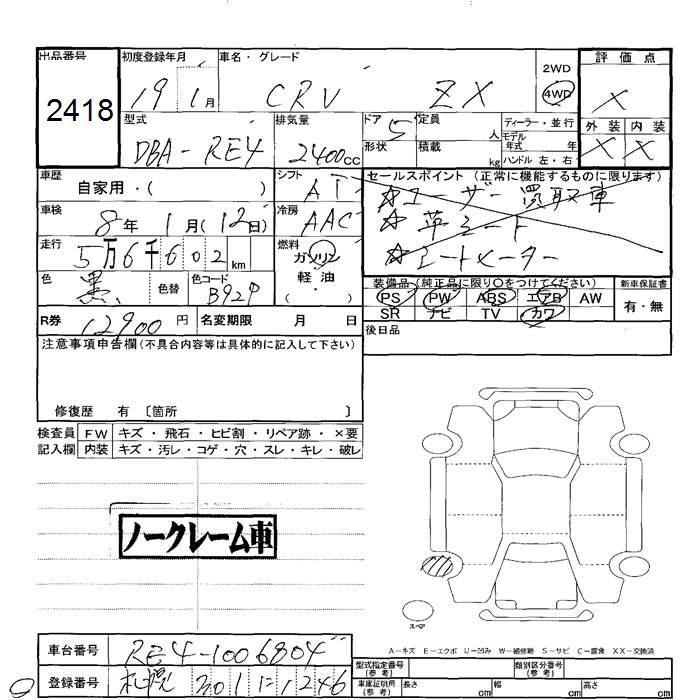 出品番号 初度登録年月 車名・グレード 2WD 評価点
2418 19 1月 CRV ZX 4WD X
型式 排気量 ドア 定員 ディーラー・並行 外装 内装
DBA-RE4 2400cc 5 人 モデル年式 年 X X
形状 積載 kg ハンドル 左・右
車歴 シフト セールスポイント (正常に機能するものに限ります)
自家用・( ) AT ☆ユーザー買取車
車検 冷房 ☆革シート
8年 1月(12日) AAC ☆シートヒーター
走行 燃料
5万6千602km ガソリン
色 色替 色コード 軽油 装備品 (純正品に限り〇をつけてください) 新車保証書
黒 B92P ( ・ ) PS PW ABS エアB AW 有・無
R券 12900円 名変期限 月 日 SR ナビ TV カワ
注意事項申告欄(不具合内容等は具体的に記入して下さい) 後日品
修復歴 有 〔箇所 〕
検査員 FW キズ・飛石・ヒビ割・リペア跡・×要
記入欄 内装 キズ・汚レ・コゲ・穴・スレ・キレ・破レ
ノークレーム車
スペア
A-キズ E-エクボ U-凹み W-補修跡 S-サビ C-腐食 XX-交換済
車台番号 RE4-1006804 型式指定番号(参考) 類別区分番号(参考)
登録番号 札幌 301 1246 車庫証明用(参考) 長さ cm 幅 cm 高さ cm